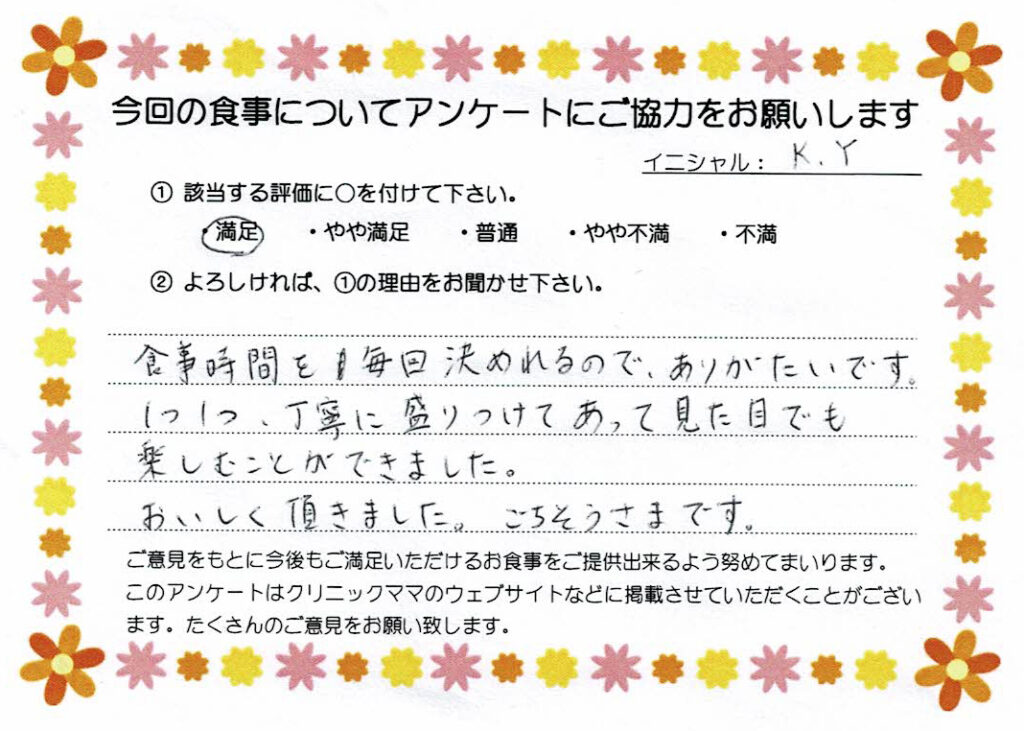 今回の食事についてアンケートにご協力をお願いします
イニシャル: K.Y
① 該当する評価に○を付けて下さい。
・満足 ・やや満足 ・普通 ・やや不満 ・不満
② よろしければ、①の理由をお聞かせ下さい。
食事時間を毎回決めれるので、ありがたいです。
1つ1つ、丁寧に盛りつけてあって見た目でも
楽しむことができました。
おいしく頂きました。ごちそうさまです。
ご意見をもとに今後もご満足いただけるお食事をご提供出来るよう努めてまいります。
このアンケートはクリニックママのウェブサイトなどに掲載させていただくことがござい
ます。たくさんのご意見をお願い致します。